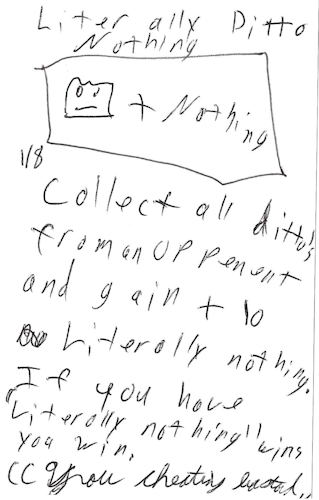 Literally Ditto
Nothing
+ Nothing
1/8
Collect all ditto's
from an oppenent
and gain + 10
Literally nothing.
If you have
"Literally nothing" wins
you win.
you cheating